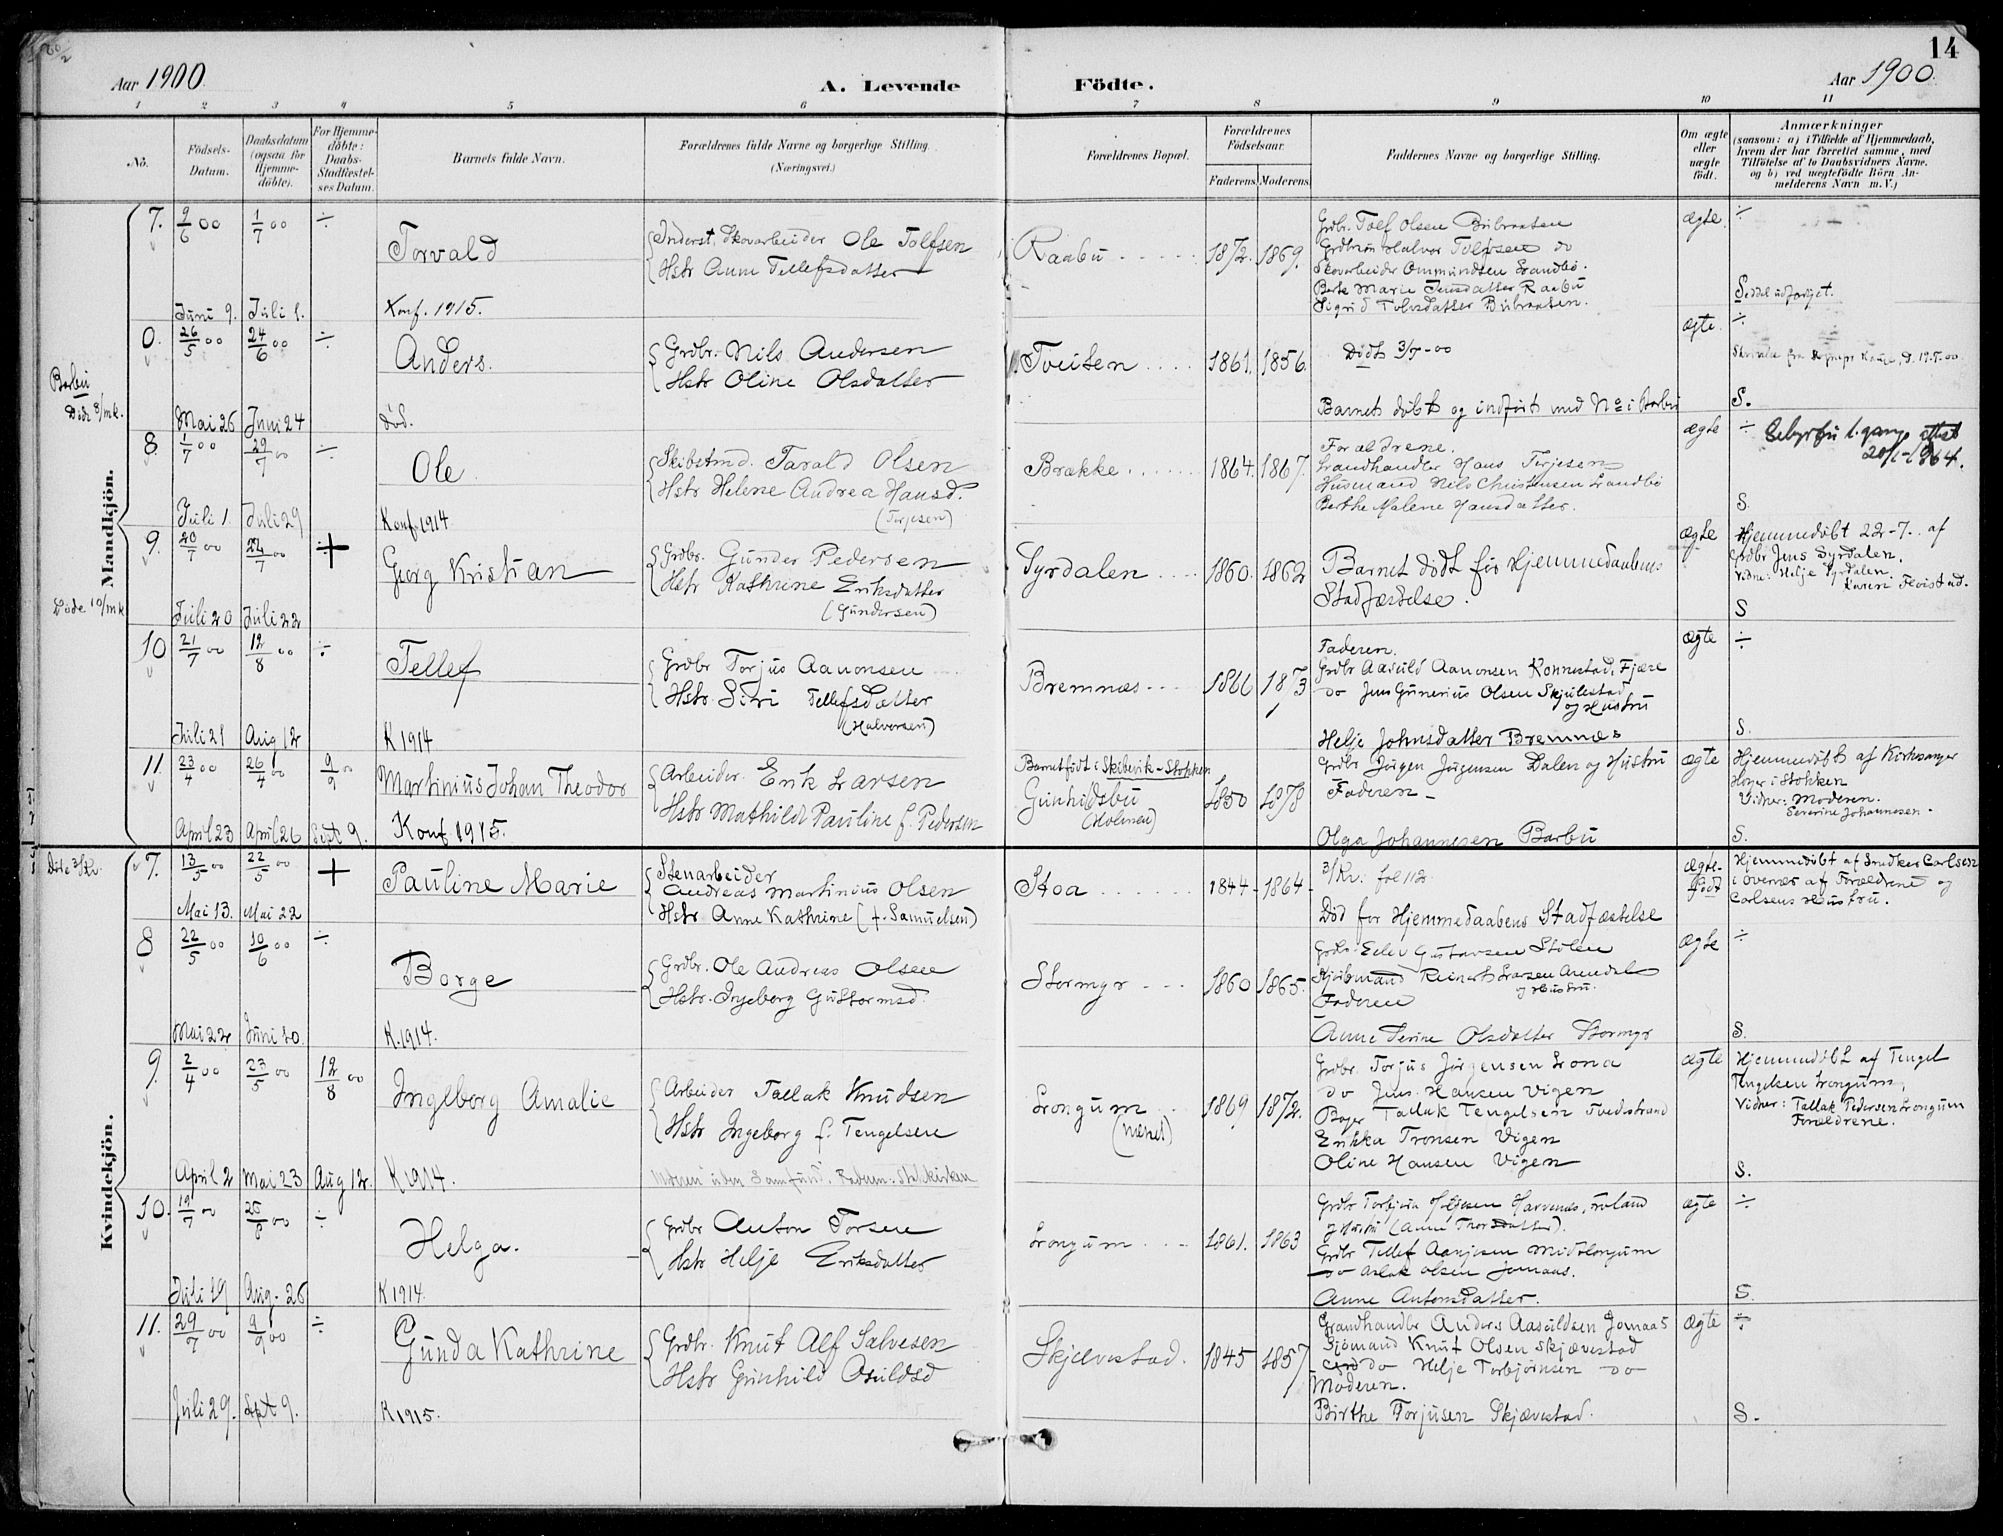 14
Aar 1900.
A. Levende Födte.
Aar 1900.
1 2 3 4 5 6 7 8 9 10 11
No.
Födsels-Datum.
Daabsdatum (ogsaa for Hjemme-döbte).
For Hjemme-döbte: Daabs-Stadfæstel-ses Datum.
Barnets fulde Navn.
Forældrenes fulde Navne og borgerlige Stilling. (Næringsvei.)
Forældrenes Bopæl.
Forældrenes Födselsaar.
Faderens. Moderens.
Faddernes Navne og borgerlige Stilling.
Om ægte eller uægte födt.
Anmærkninger
(saasom: a) i Tilfælde af Hjemmedaab,
hvem der har forrettet samme, med
Tilföielse af to Daabsvidners Navne.
og b) ved uægtefödte Börn An-
melderens Navn m.V.)
Mandkjön.
7. 9/6 00 1/7 00 ÷
Torvald
Inderst, Skovarbeider Ole Tolfsen
Hstr Anne Tellefsdatter
Raabu
1872. 1869.
Grdbr. Tolf Olsen Bübraaten
Halvor Tolfsen do
Skovarbeider Ommundsen Landbö.
Berte Marie Jensdatter Raabu
Sigrid Tolvsdatter Bübraaten.
ægte. ÷
Juni 9. Juli 1.
Konf. 1915.
Seddel udfærdiget.
Barbu
Døde 8/mk.
0. 26/5 00 24/6 00 ÷
Anders.
Grdbr. Nils Andersen
Hstr Oline Olsdatter
Tveiten
1861. 1856.
Dødt 3/7-00
ægte. ÷
Mai 26 Juni 24
død.
Barnet døbt og indført med No i Barbu
S.
8. 1/7 00 29/7 00 ÷
Ole
Skibstmd. Tarald Olsen
Hstr Helene Andrea Hansd.
(Terjesen)
Brække
1864. 1867.
Forældrene.
Landhandler Hans Terjesen
Husmand Nils Christensen Landbö
Berthe Malene Hansdatter.
ægte ÷
20/1-1964.
Juli 1 Juli 29
Konf 1914
S.
9. 20/7 00 22/7 00 +
Georg Kristian
Grdbr. Gunder Pedersen
Hstr Kathrine Eriksdatter
(Gundersen)
Syrdalen
1860. 1862
Barnet dødt før Hjemmedaabens
Stadfæstelse.
ægte
Hjemmedøbt 22-7. af
Grdbr Jens Syrdalen.
Vidne: Helje Syrdalen
Døde 10/mk
Juli 20 Juli 22
S
10 21/7 00 12/8 00 ÷
Tellef
Grdbr Torjus Aanonsen
Hstr. Siri Tellefsdatter
(Halvorsen)
Bremnæs
1866 1873
Faderen.
Grdbr Aasuld Aanonsen Konnestad, Fjære
do Jens Gunerius Olsen Skjulestad
og Hustru
Helje Johnsdatter Bremnes
ægte ÷
Juli 21 Aug 12
K 1914
S.
11. 23/4 00 26/4 00 9/9 00
Martinius Johan Theodor
Arbeider. Erik Larsen
Hstr Mathilde Pauline f. Pedersen
Barnet født i Skibevik - Stokken
Gunhildsbu
(Holmen)
1850 1878
Grdbr Jørgen Jørgensen Dalen og Hustru
Faderen -
Olga Johannesen Barbu
ægte
Hjemmedøbt af Kirkesanger
Høyer i Stokken
Vidner: Moderen.
Severine Johannesen -
April 23 April 26 Sept 9.
Konf 1915.
S.
Kvindekjön.
7. 13/5 00 22/5 00 +
Pauline Marie
Stenarbeider
Andreas Martinius Olsen
Hstr. Anne Kathrine (f. Samuelsen)
Stoa
1844 - 1864
3/Kv: fol 112
Død før Hjemmedaabens Stadfæstelse
ægte-født
Hjemmedøbt af Snedker Carlsen
i Overnæs af Forældrene og
Carlsens Hustru.
Mai 13. Mai 22
8 22/5 00 10/6 00 ÷
Borge
Grdbr. Ole Andreas Olsen
Hstr. Ingeborg Guttormsd.
Stormyr
1860 1865.
Grdbr. Eilev Gustavsen Stölen
Reinert Larsen Arendal
og Hustru.
Faderen
Anne Serine Olsdatter Stormyr
ægte ÷
Mai 22 Juni 10
K. 1914.
S.
9. 2/4 00 23/5 00 12/8 00
Ingeborg Amalie
Arbeider Tallak Knudsen
Hstr Ingeborg f. Tengelsen
Longum
1869 1872.
Grdbr. Torjus Jørgensen Lona
do Jens Hansen Vigen
Tallak Tengelsen Tvedstrand
Erikka Tronsen Vigen
Oline Hansen Vigen
ægte
Hjemmedøbt af Tengel
Tengelsen Longum,
Vidner: Tallak Pedersen Longum
Forældrene.
April 2 Mai 23 Aug 12.
K 1914.
S.
10. 19/7 00 26/8 00 ÷
Helga.
Grdbr Anton Torsen
Hstr Helje Eriksdatter
Longum
1861. 1863
og Hustru (Anne Thorsdatter).
Grdbr Tellef Aanjesen Midtlongum
do Aslak Olsen Jomaas.
Anne Antonsdatter.
ægte ÷
Juli 19 Aug. 26
K 1914.
S.
11. 29/7 00 9/9 00 ÷
Gunda Kathrine
Grdbr. Knut Alf Salvesen
Hstr Gunhild Osuldsd
Skjævestad.
1845 1857
Grandhandler Anders Aasuldsen Jomaas
Sjømand Knut Olsen Skjævestad
do Helje Torbjørnsen do
Moderen.
Birthe Torjusen Skjævestad.
ægte ÷
Juli 29. Sept 9.
K 1915.
S.